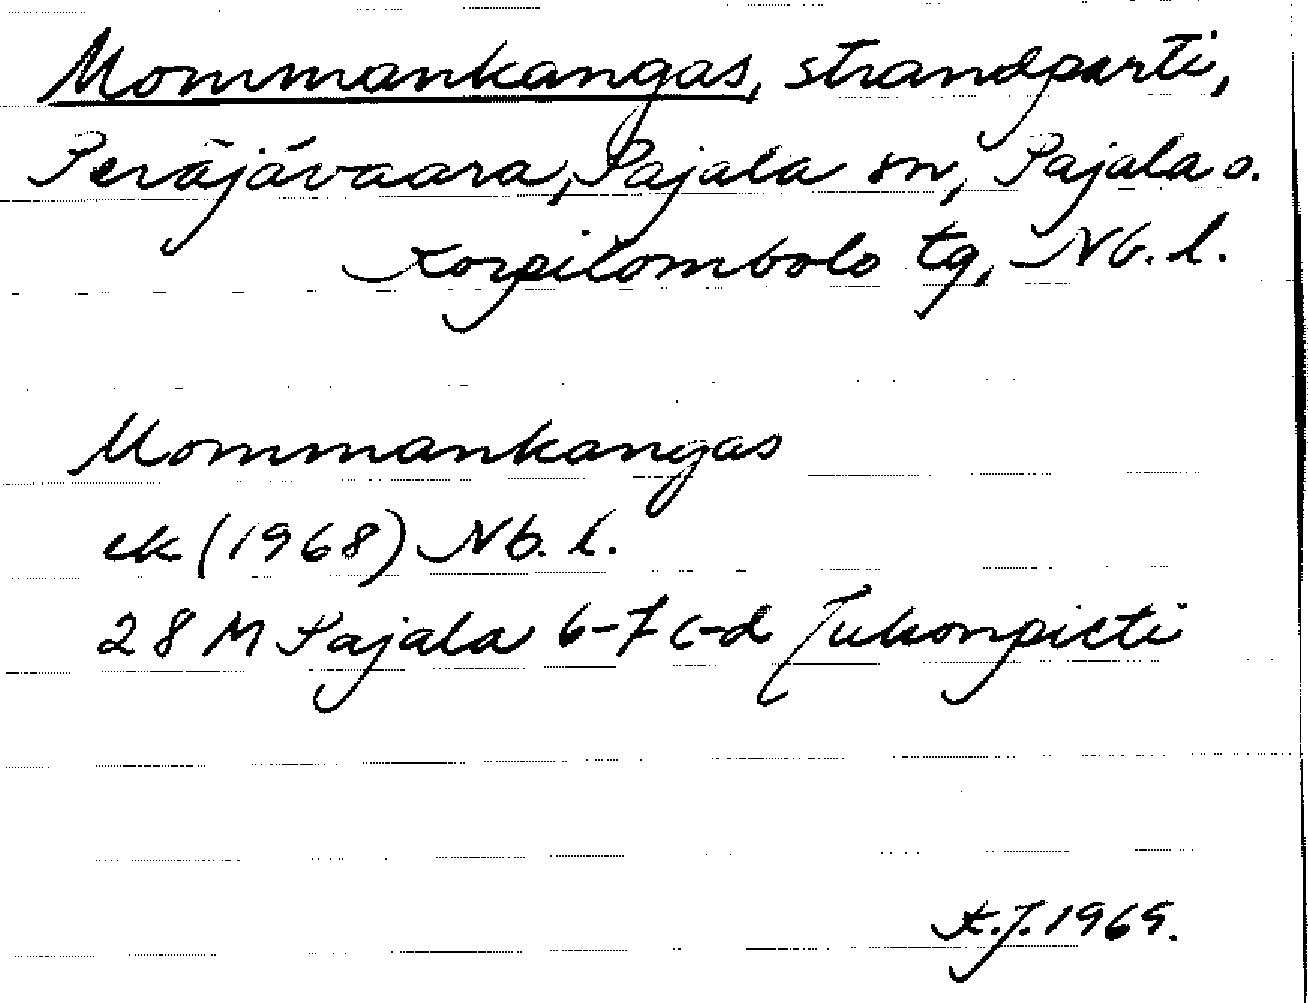 Mommankangas, strandparti,
Peräjävaara, Pajala sn, Pajala o.
Korpilombolo tg, Nb. l.
Mommankangas
ek (1968) Nb. l.
28 M Pajala 6-7 c-d Jukonpieti
K.J. 1969.